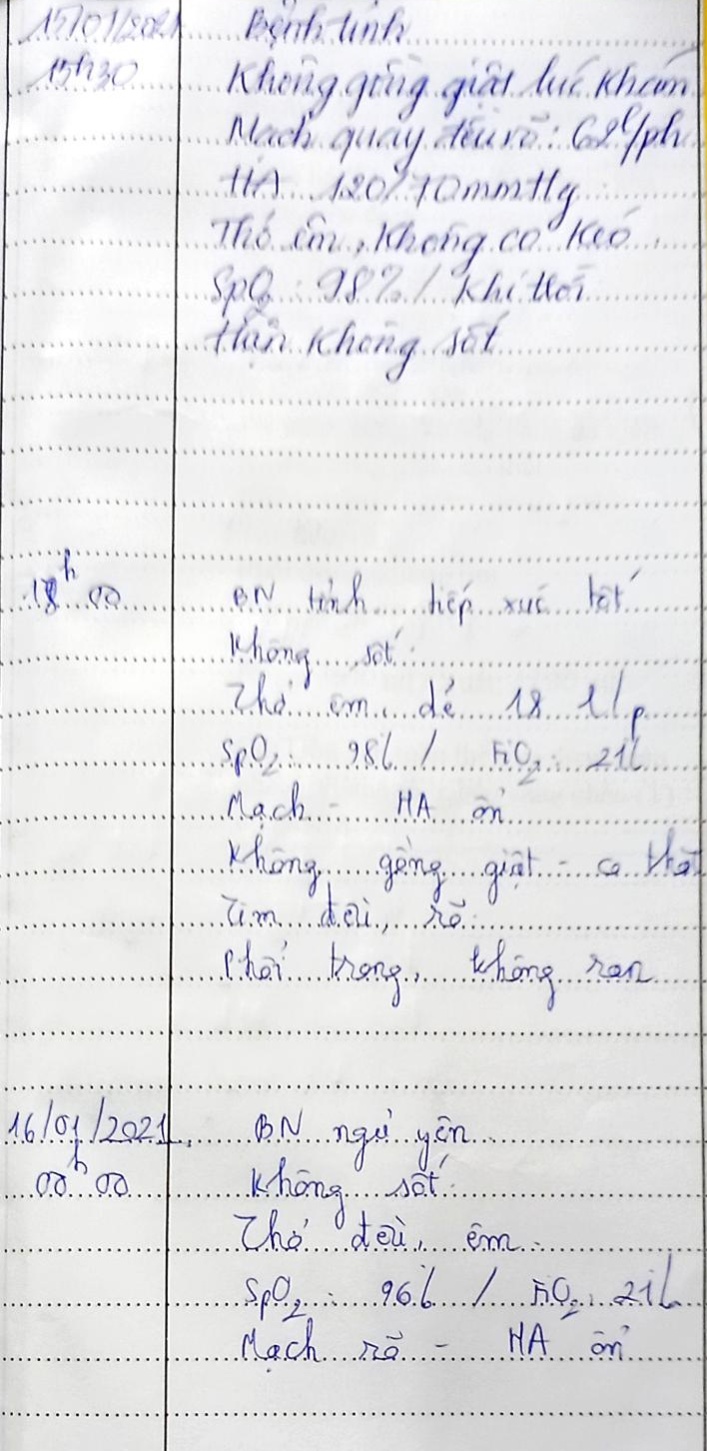 15/01/2021 Bệnh tỉnh
15h30 Không gồng giật lúc khám
Mạch quay đều rõ: 62 l/ph
HA 120/70mmHg
Thở êm, không co kéo
SpO2: 98% / khí trời
Hiện không sốt
18h00 BN tỉnh tiếp xúc tốt
Không sốt.
Thở êm, dễ 18 l/p
SpO2: 98% / FiO2: 21%
Mạch - HA ổn
Không gồng giật - co thắt
Tim đều, rõ.
Phổi trong, không ran
16/01/2021 BN ngủ yên
00h00 Không sốt.
Thở đều, êm.
SpO2: 96% / FiO2: 21%
Mạch rõ - HA ổn